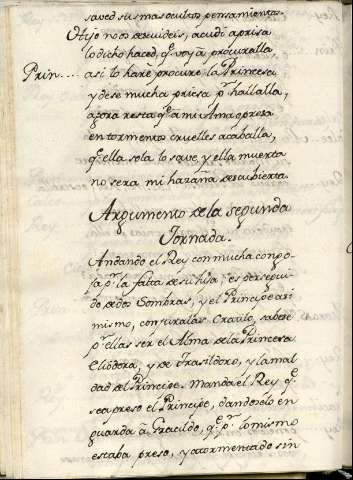 saved sus mas ocultos pensamientos.
Otijo no os descuideis, acudi aprisa
lo dicho haced, q.e voy â procuralla
Prin.... asi lo harè procure la Princesa
y dese mucha priesa p.r hallalla,
agora resta q.e a mi Ama opresa
en tormentos crueles acaballa,
q.e ella sola lo save, y ella muerta
no sera mi hazaña descubierta.
Argumento de la segunda
Jornada.
Andando el Rey con mucha congo-
ja p.r la falta de su hija, es persegui-
do de dos Sombras, y el Principe asi
mismo, conjuralas Cratilo, sabese
p.r ellas ser el Alma de la Princesa
Eliodora, y de Trasildoro, y la mal
dad del Principe. Manda el Rey q.e
sea preso el Principe, dandoselo en
guarda â Gracildo, q.e p.r lo mismo
estaba preso, y atormentado sin